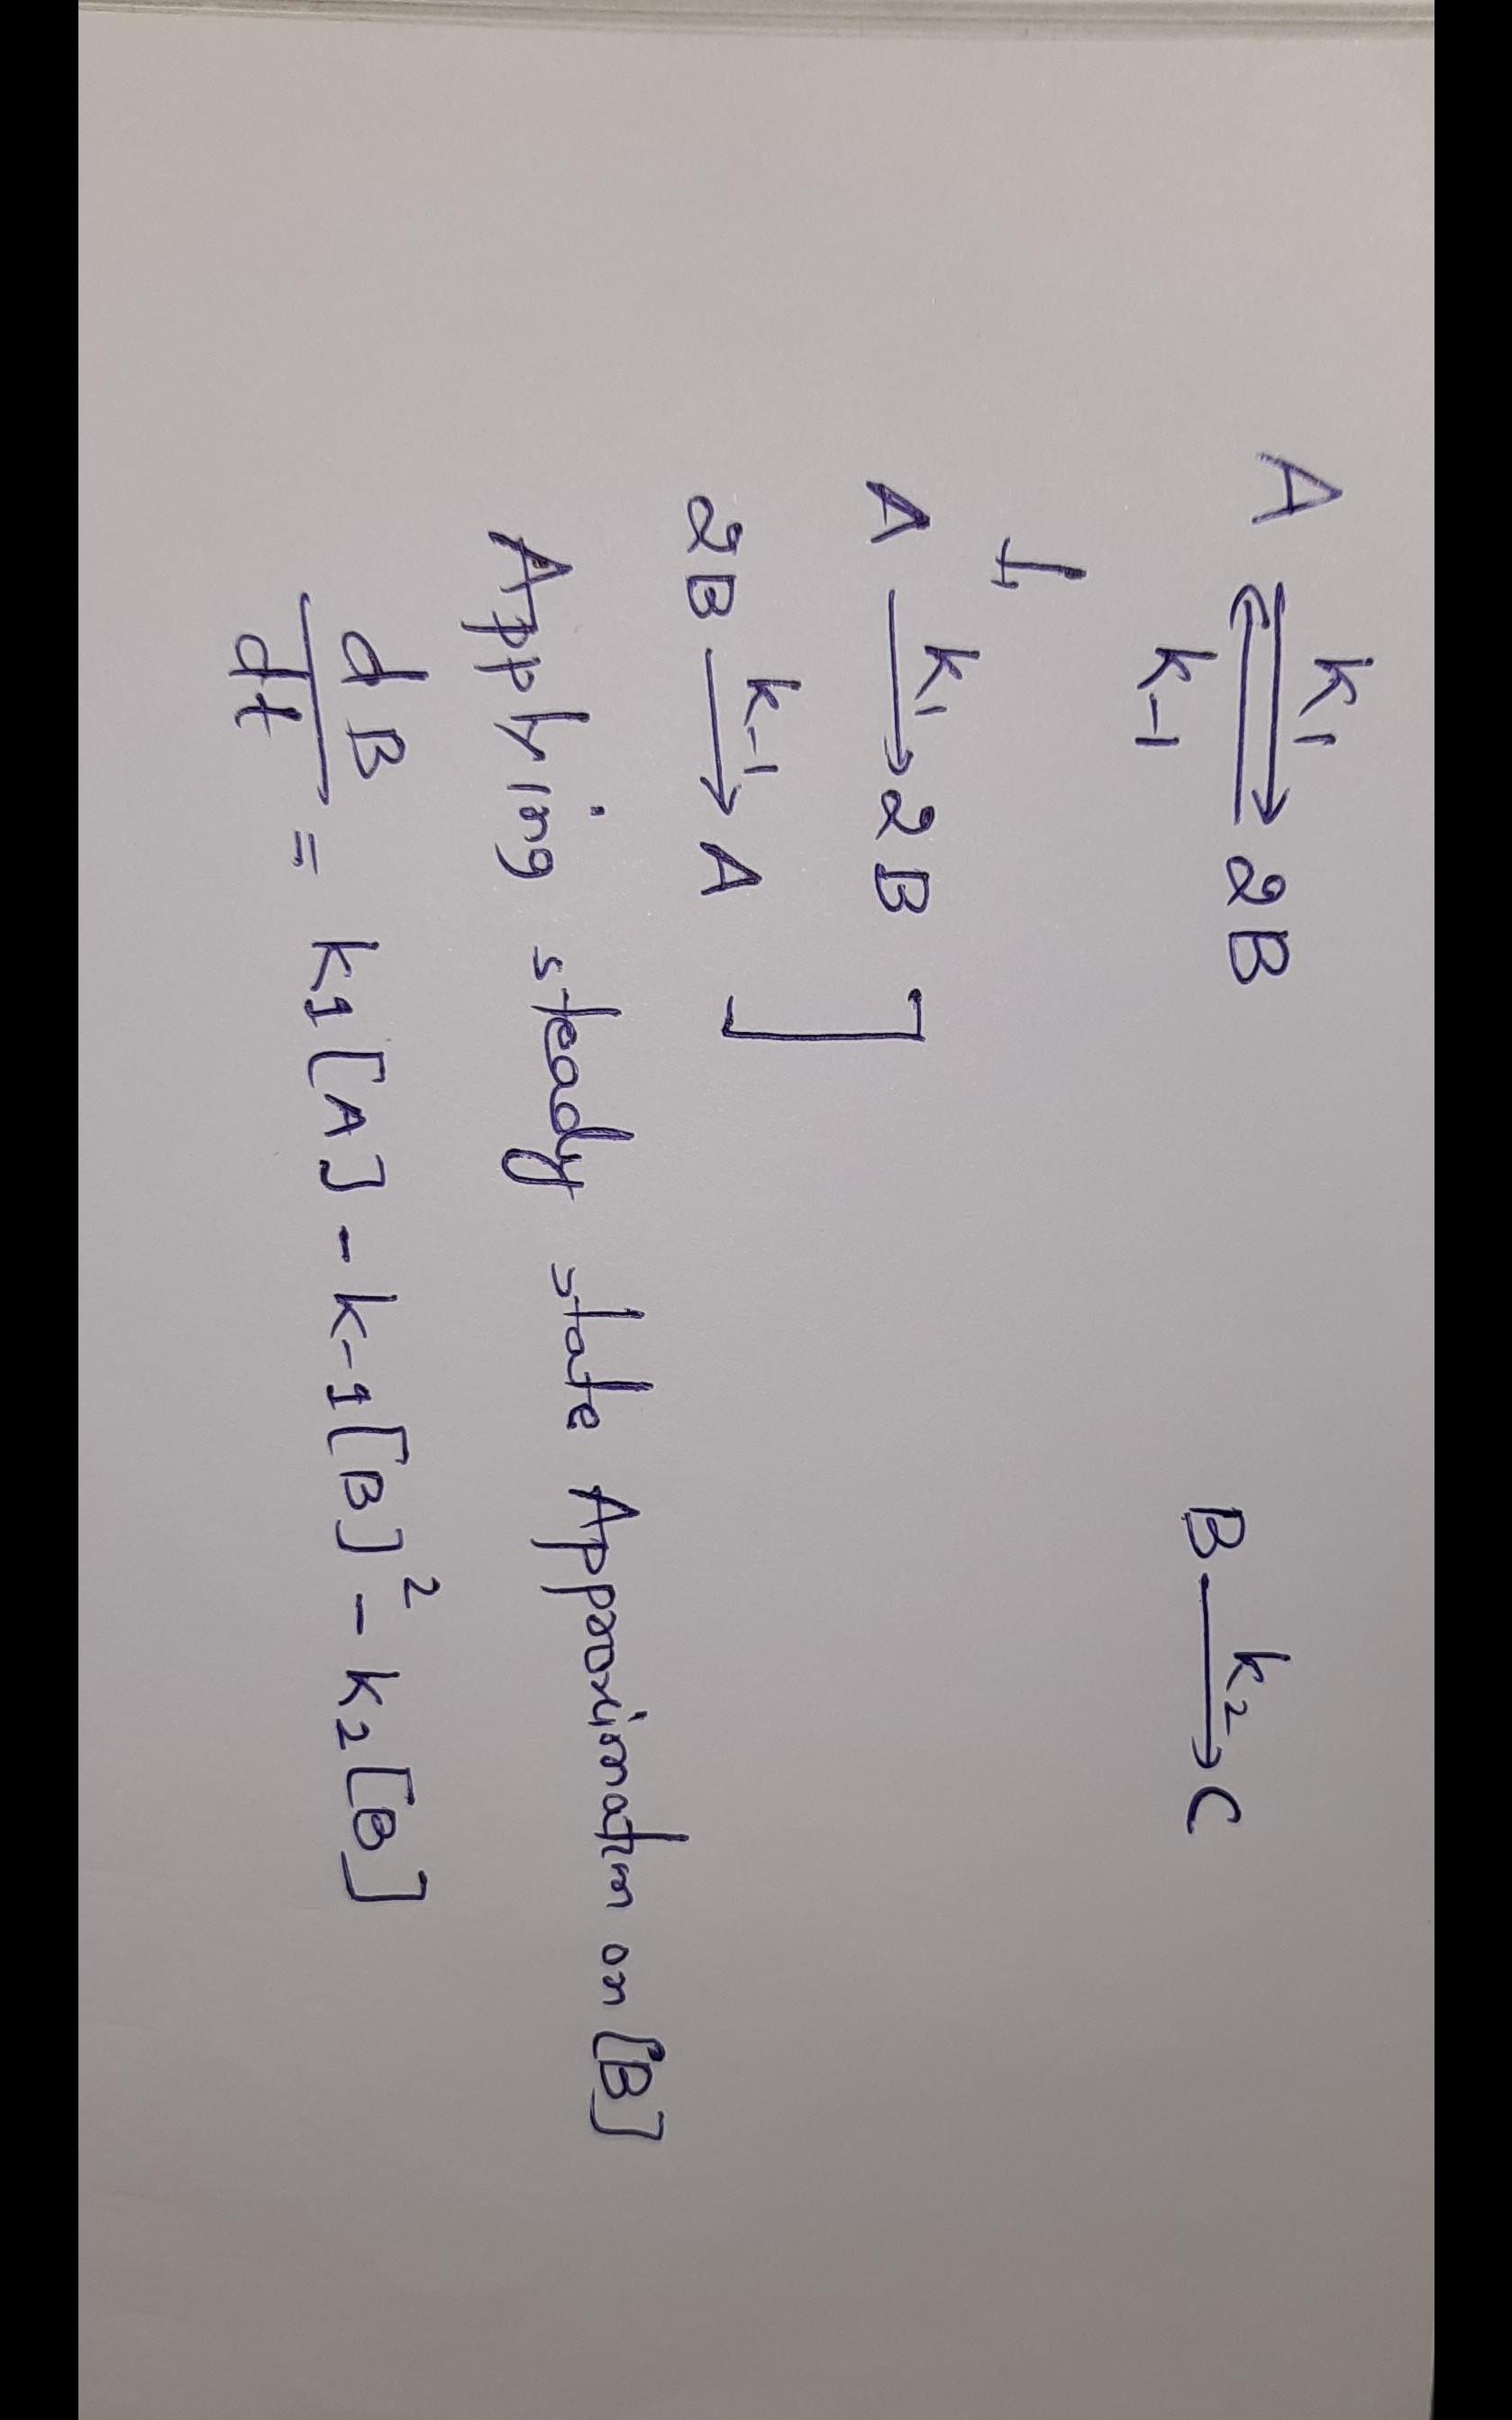 A ⇌ 2B   B → C
k1   k-1   k2
↓
A → 2B ]
k1
2B → A
k-1
Applying steady state Approximation on [B]
dB/dt = k1[A] - k-1[B]² - k2[B]